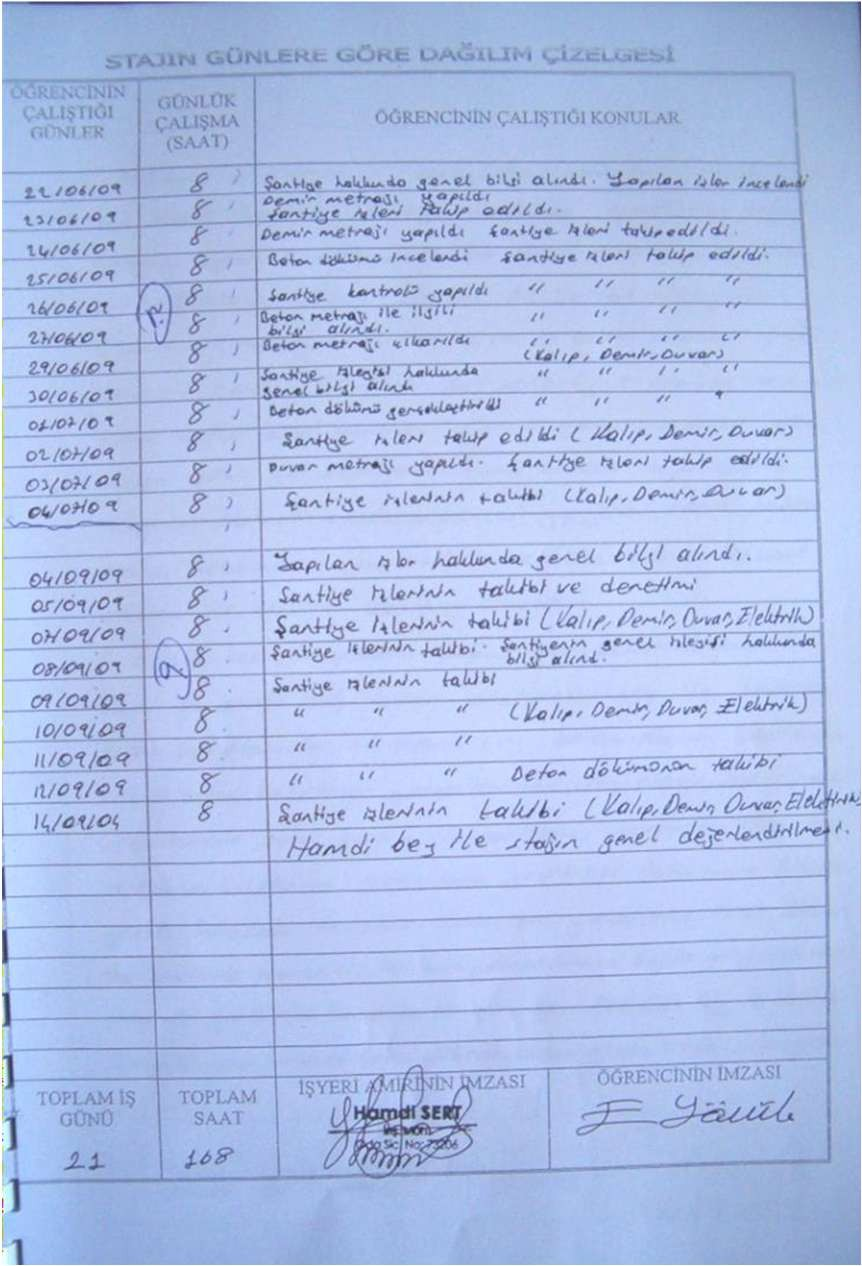 STAJIN GÜNLERE GÖRE DAĞILIM ÇİZELGESİ
ÖĞRENCİNİN ÇALIŞTIĞI GÜNLER GÜNLÜK ÇALIŞMA (SAAT) ÖĞRENCİNİN ÇALIŞTIĞI KONULAR
22/06/09 8 Şantiye hakkında genel bilgi alındı. Yapılan işler incelendi
23/06/09 8 Demir metrajı yapıldı Şantiye işleri takip edildi.
24/06/09 8 Demir metrajı yapıldı Şantiye işleri takip edildi.
25/06/09 8 Beton dökümü incelendi Şantiye işleri takip edildi.
26/06/09 8 Şantiye kontrolü yapıldı " " " "
27/06/09 8 Beton metrajı ile ilgili bilgi alındı. " " " "
29/06/09 8 Beton metrajı çıkarıldı " " " " (Kalıp, Demir, Duvar)
30/06/09 8 Şantiye işleyişi hakkında genel bilgi alındı " " " "
01/07/09 8 Beton dökümü gerçekleştirildi " " " "
02/07/09 8 Şantiye işleri takip edildi (Kalıp, Demir, Duvar)
03/07/09 8 Duvar metrajı yapıldı. Şantiye işleri takip edildi.
04/07/09 8 Şantiye işlerinin takibi (Kalıp, Demir, Duvar)
04/09/09 8 Yapılan işler hakkında genel bilgi alındı.
05/09/09 8 Şantiye işlerinin takibi ve denetimi
07/09/09 8 Şantiye işlerinin takibi (Kalıp, Demir, Duvar, Elektrik)
08/09/09 8 Şantiye işlerinin takibi. Şantiyenin genel işleyişi hakkında bilgi alındı.
09/09/09 8 Şantiye işlerinin takibi
10/09/09 8 " " " (Kalıp, Demir, Duvar, Elektrik)
11/09/09 8 " " "
12/09/09 8 " " " Beton dökümünün takibi
14/09/04 8 Şantiye işlerinin takibi (Kalıp, Demir, Duvar, Elektirik)
Hamdi bey ile stajın genel değerlendirilmesi.
TOPLAM İŞ GÜNÜ TOPLAM SAAT İŞYERİ AMİRİNİN İMZASI ÖĞRENCİNİN İMZASI
Hamdi SERT
Oda Sic. No: 73206
21 168